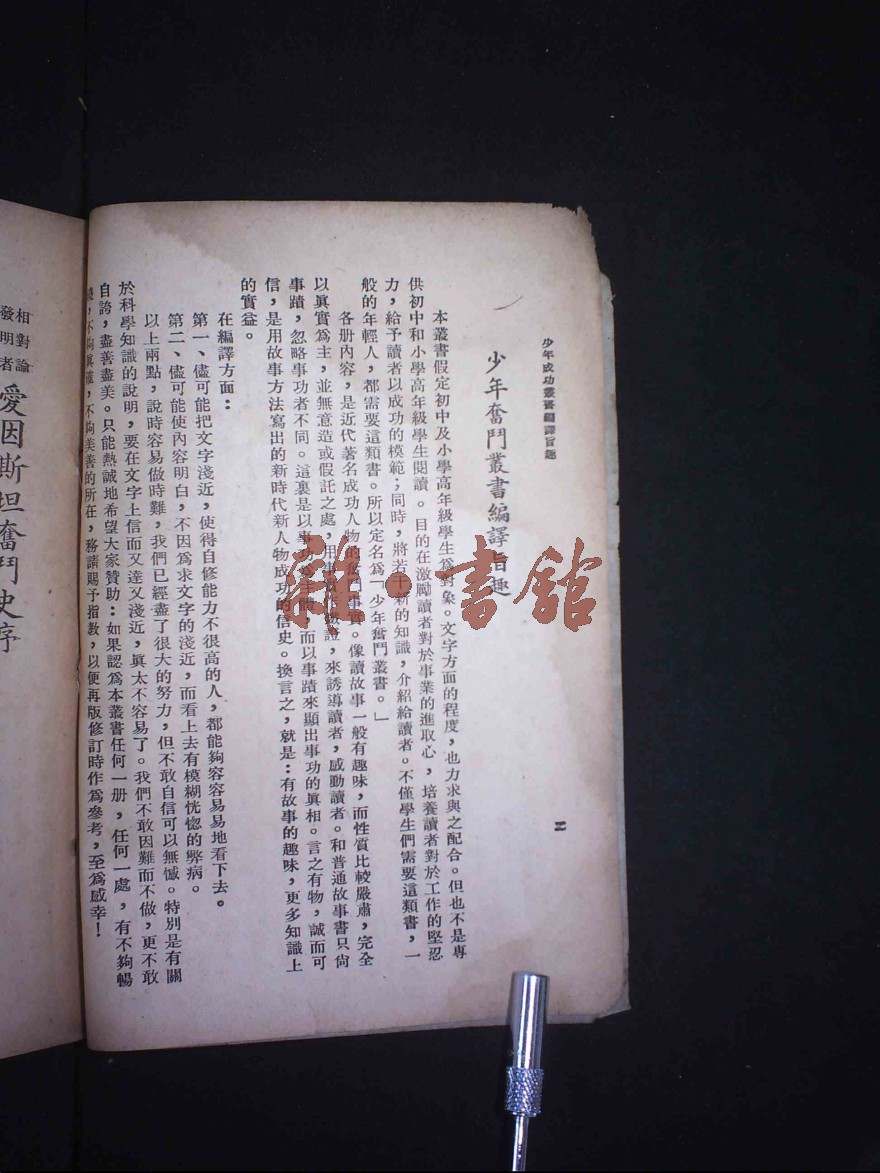 少年成功叢書編譯旨趣
二
少年奮鬥叢書編譯旨趣
本叢書假定初中及小學高年級學生爲對象。文字方面的程度，也力求與之配合。但也不是專
供初中和小學高年級學生閱讀。目的在激勵讀者對於事業的進取心，培養讀者對於工作的堅忍
力，給予讀者以成功的模範；同時，將若干新的知識，介紹給讀者。不僅學生們需要這類書，一
般的年輕人，都需要這類書。所以定名爲「少年奮鬥叢書。」
各册內容，是近代著名成功人物的奮鬥事實。像讀故事一般有趣味，而性質比較嚴肅，完全
以眞實爲主，並無意造或假託之處，用事 證，來誘導讀者，感動讀者。和普通故事書只尙
事蹟，忽略事功者不同。這裏是以事功爲主體，而以事蹟來顯出事功的眞相。言之有物，誠而可
信，是用故事方法寫出的新時代新人物成功的信史。換言之，就是：有故事的趣味，更多知識上
的實益。
在編譯方面：
第一、儘可能把文字淺近，使得自修能力不很高的人，都能夠容容易易地看下去。
第二、儘可能使內容明白，不因爲求文字的淺近，而看上去有模糊恍惚的弊病。
以上兩點，說時容易做時難，我們已經盡了很大的努力，但不敢自信可以無憾。特別是有關
於科學知識的說明，要在文字上信而又達又淺近，眞太不容易了。我們不敢因難而不做，更不敢
自誇，盡善盡美。只能熱誠地希望大家贊助：如果認爲本叢書任何一册，任何一處，有不夠暢
達，不夠眞確，不夠美善的所在，務請賜予指教，以便再版修訂時作爲參考，至爲感幸！
相對論
發明者
愛因斯坦奮鬥史序
雜·書館